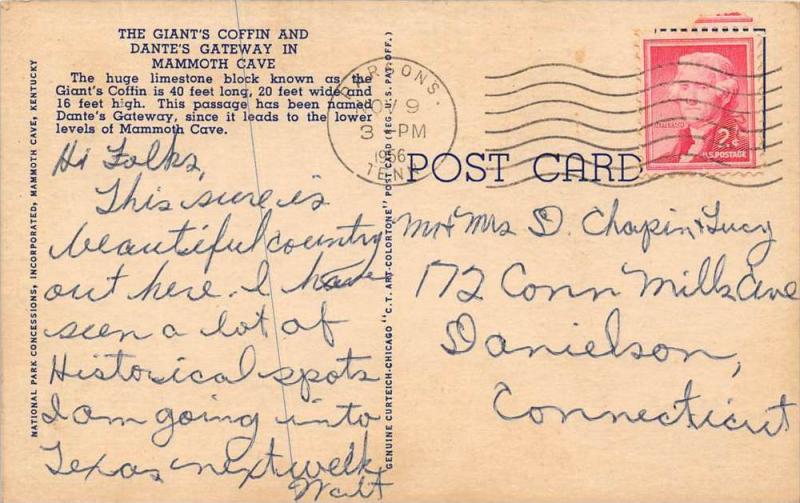 THE GIANT'S COFFIN AND
DANTE'S GATEWAY IN
MAMMOTH CAVE
The huge limestone block known as the
Giant's Coffin is 40 feet long, 20 feet wide and
16 feet high. This passage has been named
Dante's Gateway, since it leads to the lower
levels of Mammoth Cave.
Hi Folks,
This sure is
beautiful country
out here. I have
seen a lot of
Historical spots
I am going into
Texas next week
Walt
NATIONAL PARK CONCESSIONS, INCORPORATED, MAMMOTH CAVE, KENTUCKY
GENUINE CURTEICH-CHICAGO "C.T. ART-COLORTONE" POST CARD (REG. U.S. PAT. OFF.)
PARSONS.
NOV 9
3 - PM
1956
TENN
POST CARD
JEFFERSON
2¢
U.S. POSTAGE
Mr + Mrs D. Chapin + Lucy
172 Conn Mills Ave
Danielson,
Connecticut